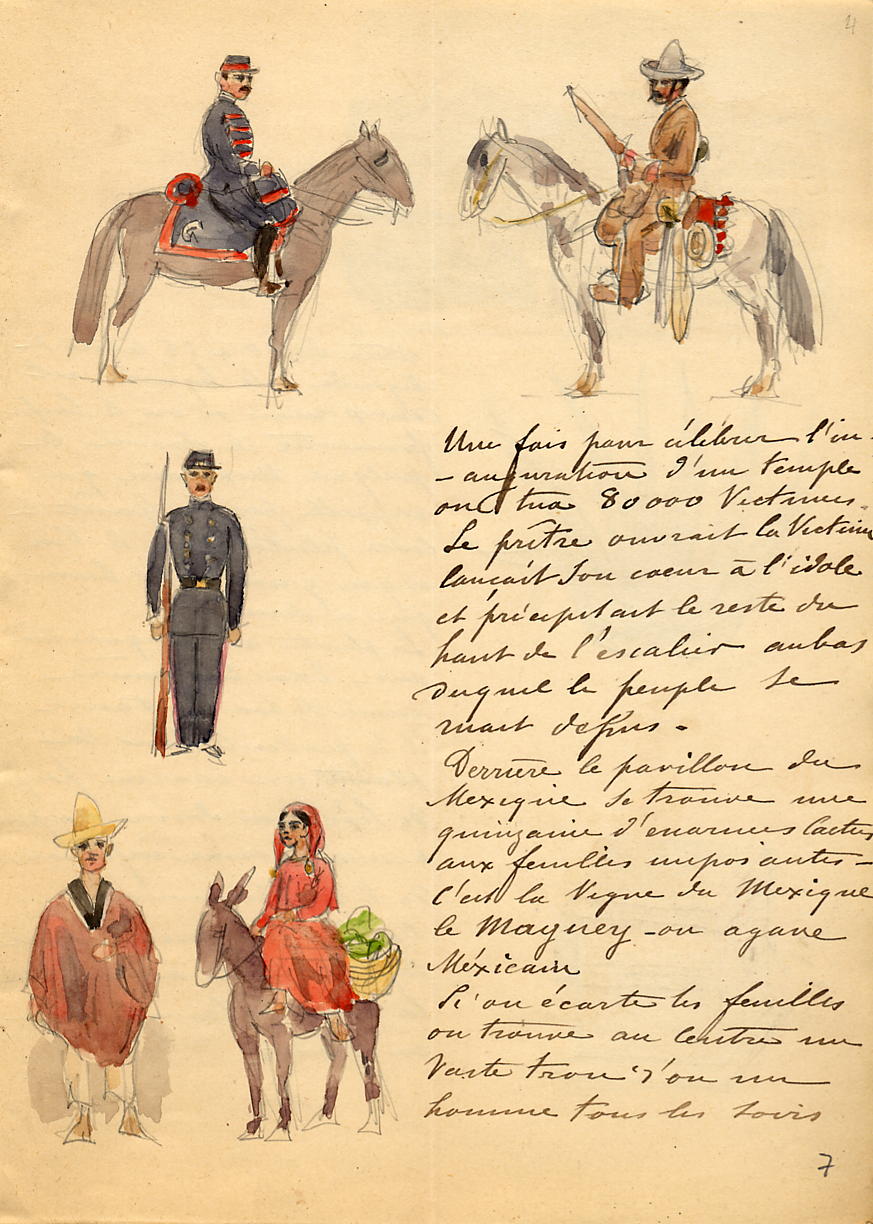 4
Une fois pour célébrer l'in-
-auguration d'un temple
on tua 80000 Victimes.
Le prêtre ouvrait la Victime
lançait son coeur à l'idole
et précipitait le reste du
haut de l'escalier au bas
duquel le peuple se
ruait dessus.
Derrière le pavillon du
Mexique se trouve une
quinzaine d'enormes Cactus
aux feuilles imposantes -
C'est la Vigne du Mexique
le Maguey - ou agave
Méxicain
Si on écarte les feuilles
on trouve au Centre un
Vaste trou d'ou un
homme tous les soirs
7